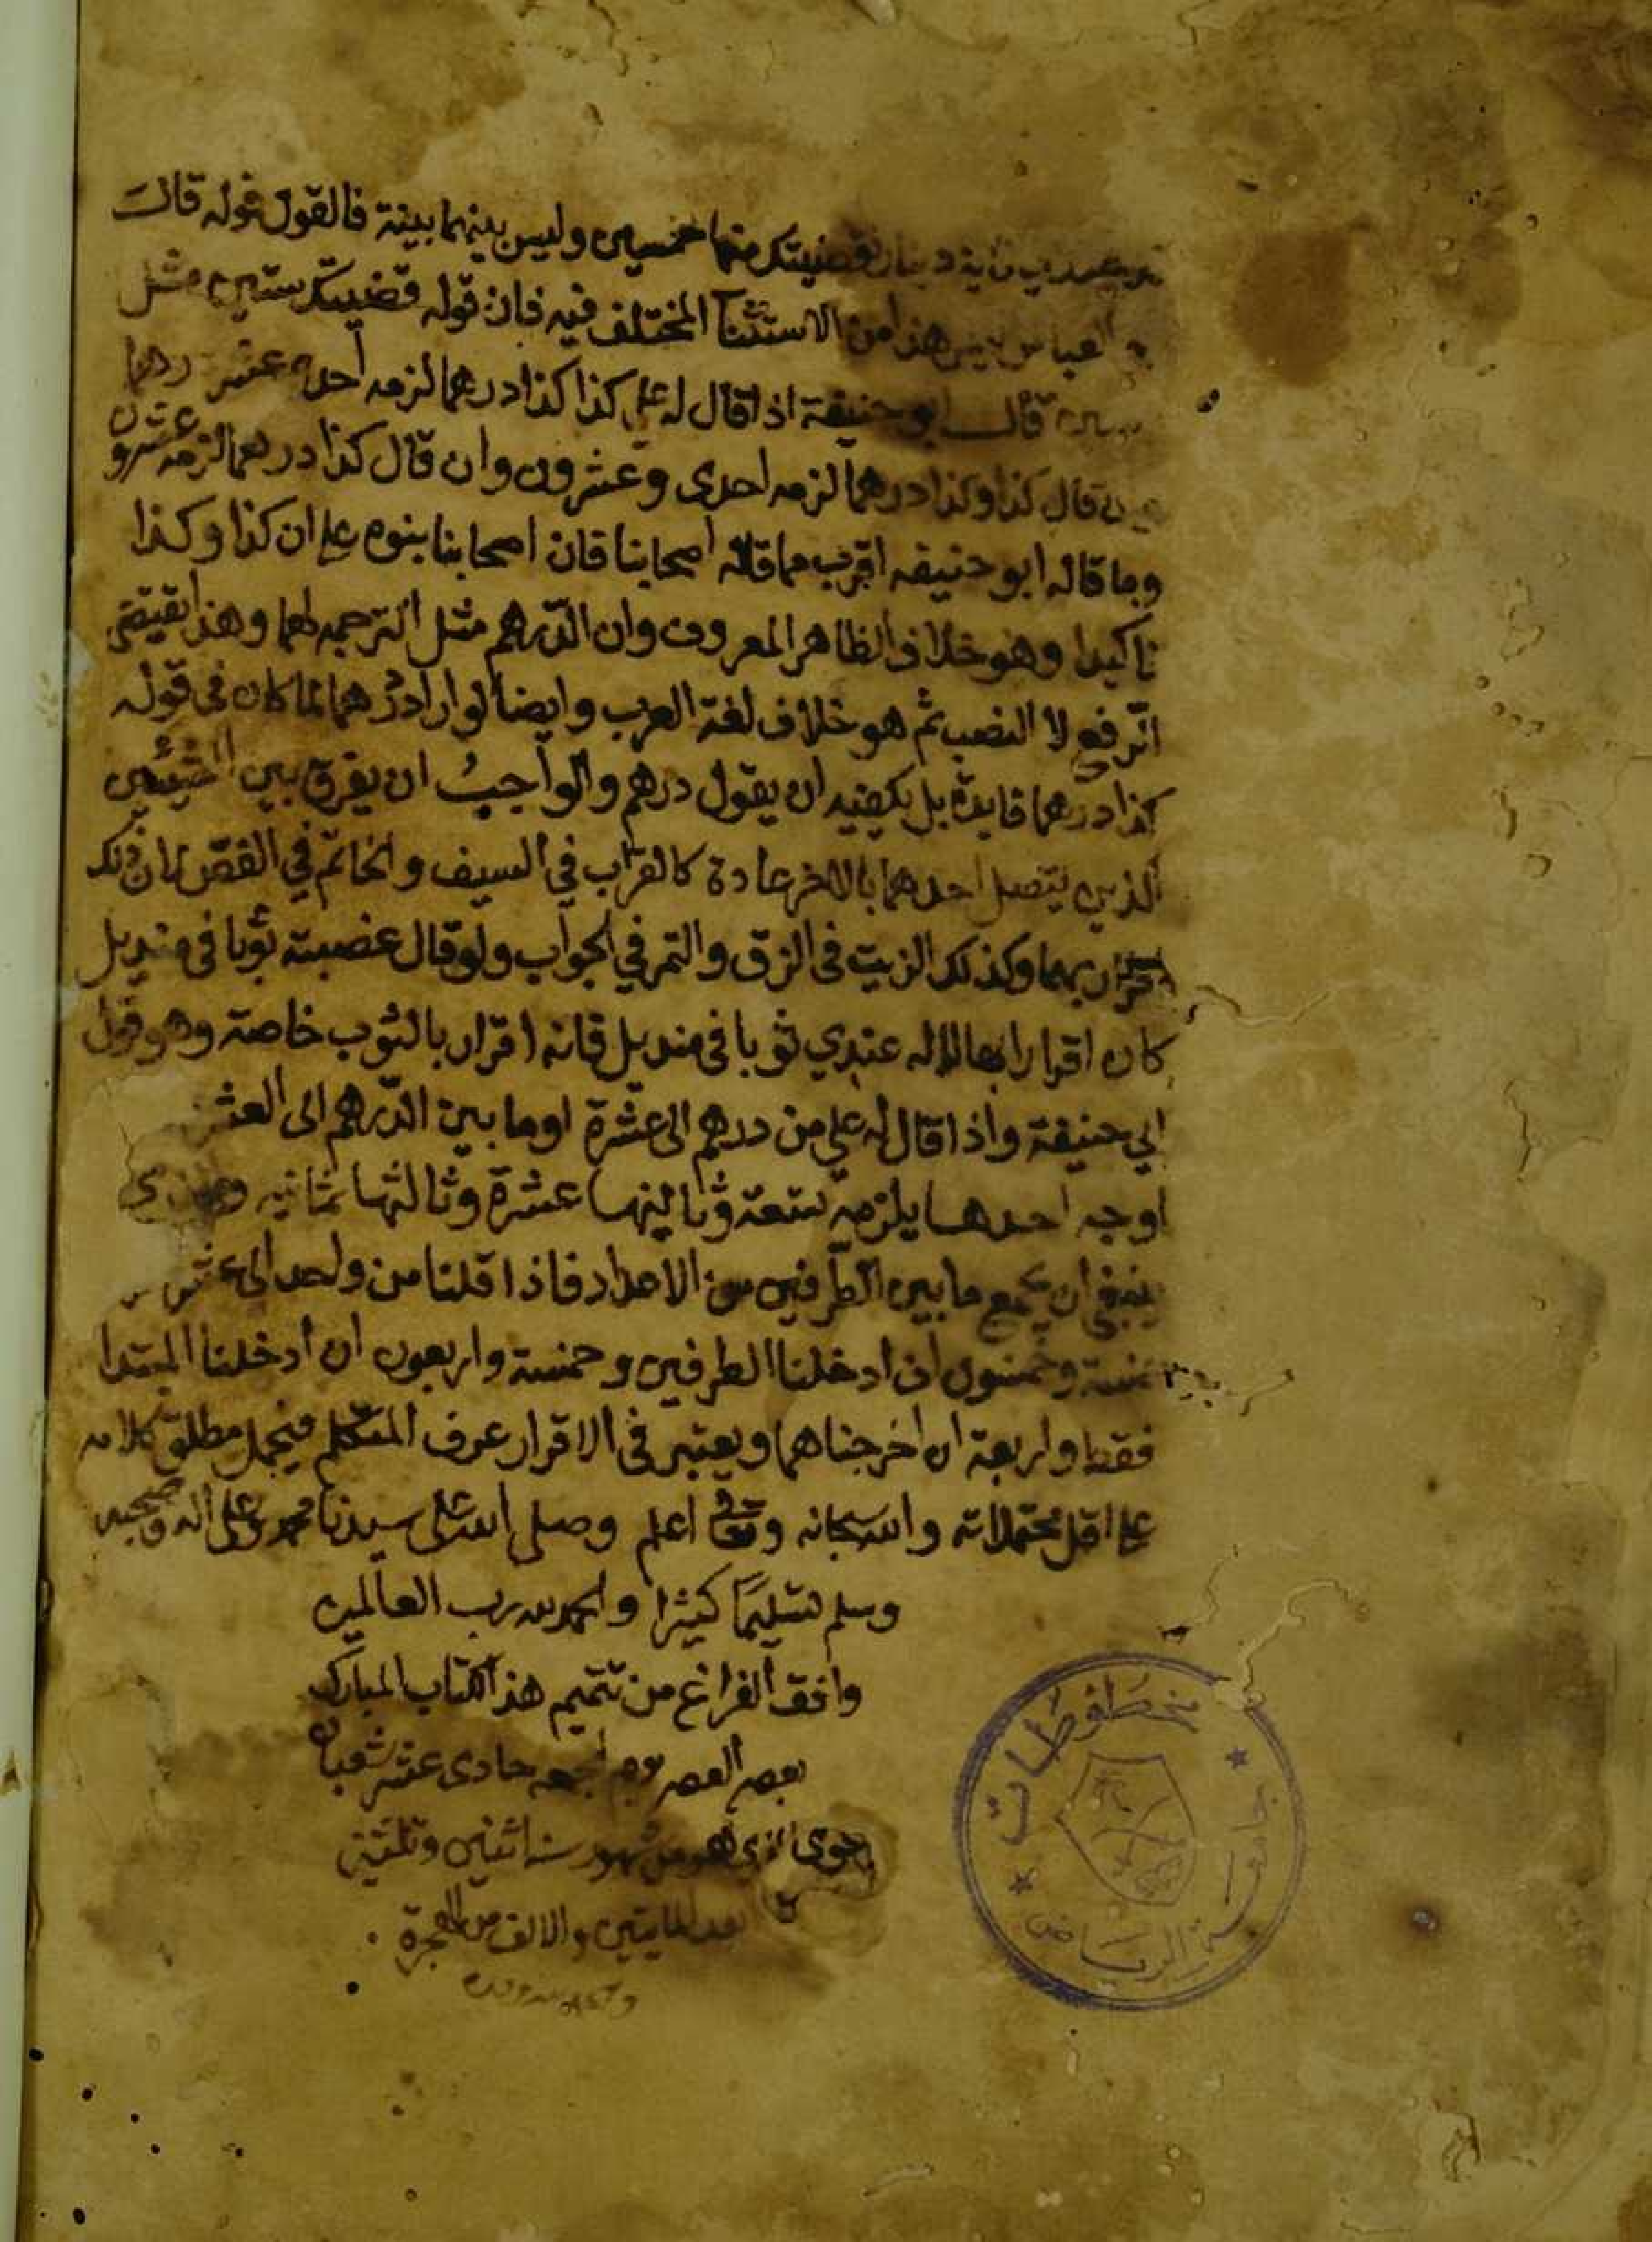 دينار فقضيتك منها خمسين وليس بينهما بينة فالقول قوله قالت
العباس هذا من الاستثنا المختلف فيه فان قوله قضيتك ستين مثل
قال ابو حنيفة اذا قال له على كذا كذا درهما لزمه أحد عشر درهما
قال كذا وكذا درهما لزمه احدى وعشرون وان قال كذا درهما لزمه عشرون
وما قاله ابو حنيفه اقرب مما قاله اصحابنا فان اصحابنا بنوه على ان كذا وكذا
تاكيدا وهو خلاف الظاهر المعروف وان الدرهم مثل الترجمه لهما وهذا يقتضي
الرفع لا النصب ثم هو خلاف لغة العرب وايضا لو اراد درهما لما كان في قوله
كذا درهما فايدة بل يكفيه ان يقول درهم والواجب ان يفرق بين الشيئين
الذين يتصل احدهما بالاخر عادة كالقراب في السيف والخاتم في الفص لان ذلك
اقرار بهما وكذلك الزيت في الزق والتمر في الجراب ولو قال غصبته ثوبا في منديل
كان اقرارا بهما لا له عندي ثوبا في منديل فانه اقرار بالثوب خاصة وهو قول
ابي حنيفة واذا قال له علي من درهم الى عشرة او ما بين الدرهم الى العشرة
اوجه احدها يلزمه تسعة وثانيها عشرة وثالثها ثمانيه
ينبغي ان يجمع ما بين الطرفين من الاعداد فاذا قلنا من واحد الى عشر
خمسة وخمسون ان ادخلنا الطرفين وخمسة واربعون ان أدخلنا المبتدا
فقط واربعة ان اخرجناهما ويعتبر في الاقرار عرف المتكلم فيحمل مطلق كلامه
على اقل محتملاته والله سبحانه وتعالى اعلم وصلى الله على سيدنا محمد وعلى اله وصحبه
وسلم تسليما كثيرا والحمد لله رب العالمين
وافق الفراغ من تتميم هذا الكتاب المبارك
العصر يوم الجمعه حادى عشر شعبان
الذي هو من شهور سنة اثنين وثلثين
بعد المايتين والالف من الهجرة
مخطوطات
جامعة الرياض